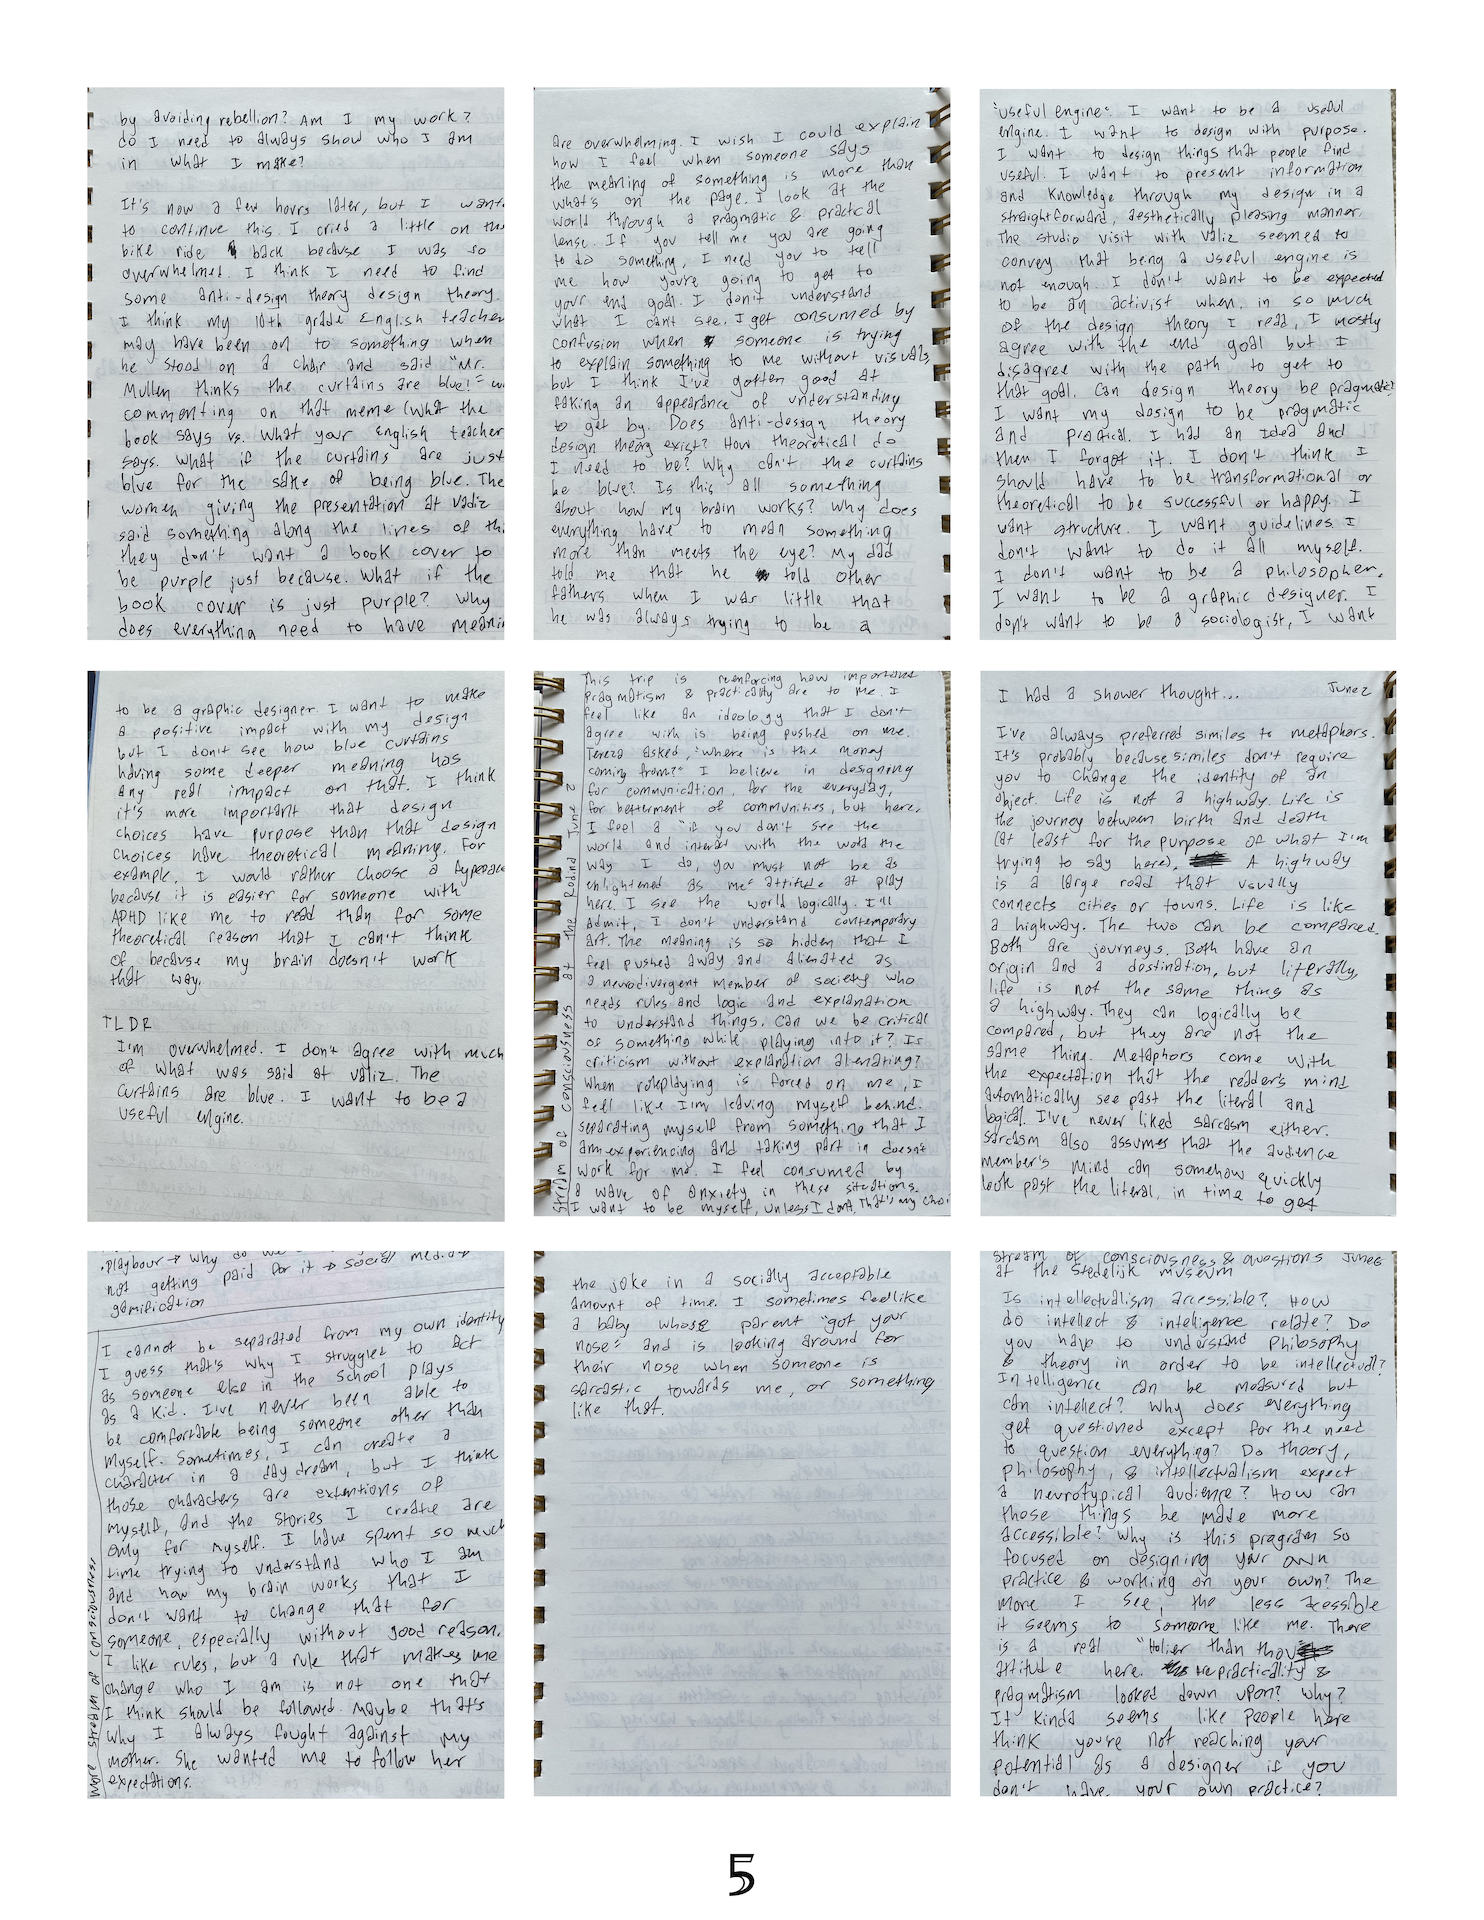 by avoiding rebellion? Am I my work?
do I need to always show who I am
in what I make?
It's now a few hours later, but I want
to continue this. I cried a little on the
bike ride back because I was so
overwhelmed. I think I need to find
some anti-design theory design theory.
I think my 10th grade English teacher
may have been on to something when
he stood on a chair and said "Mr.
Mullen thinks the curtains are blue!"
commenting on that meme (what the
book says vs. what your English teacher
says. What if the curtains are just
blue for the sake of being blue. The
women giving the presentation at Valiz
said something along the lines of
they don't want a book cover to
be purple just because. What if the
book cover is just purple? Why
does everything need to have
are overwhelming. I wish I could explain
how I feel when someone says
the meaning of something is more than
what's on the page. I look at the
world through a pragmatic & practical
lense. If you tell me you are going
to do something, I need you to tell
me how you're going to get to
your end goal. I don't understand
what I cant see. I get consumed by
confusion when someone is trying
to explain something to me without visuals,
but I think I've gotten good at
faking an appearance of understanding
to get by. Does anti-design theory
design theory exist? How theoretical do
I need to be? Why can't the curtains
be blue? Is this all something
about how my brain works? Why does
everything have to mean something
more than meets the eye? My dad
told me that he told other
fathers when I was little that
he was always trying to be a
"useful engine". I want to be a useful
engine. I want to design with purpose.
I want to design things that people find
useful. I want to present information
and knowledge through my design in a
straightforward, aesthetically pleasing manner.
The studio visit with Valiz seemed to
convey that being a useful engine is
not enough. I don't want to be expected
to be an activist when, in so much
of the design theory I read, I mostly
agree with the end goal but I
disagree with the path to get to
that goal. Can design theory be pragmatic?
I want my design to be pragmatic
and pratical. I had an idea and
then I forgot it. I don't think I
should have to be transformational or
theoretical to be successful or happy. I
want structure. I want guidelines I
don't want to do it all myself.
I don't want to be a philosopher,
I want to be a graphic designer. I
don't want to be a sociologist, I want
to be a graphic designer. I want to make
a positive impact with my design
but I don't see how blue curtains
having some deeper meaning has
any real impact on that. I think
it's more important that design
choices have purpose than that design
choices have theoretical meaning. For
example, I would rather choose a typeface
because it is easier for someone with
APHD like me to read than for some
theoretical reason that I can't think
of because my brain doesn't work
that way.
TLDR
I'm overwhelmed. I don't agree with much
of what was said at Valiz. The
curtains are blue. I want to be a
useful engine.
Stream of consciousness at The Rodina June 2
This trip is reenforcing how important
pragmatism & practicality are to me. I
feel like an ideology that I don't
agree with is being pushed on me.
Tereza asked, "where is the money
coming from?" I believe in designing
for communication, for the everyday,
for betterment of communities, but here,
I feel a "if you don't see the
world and interact with the world the
way I do, you must not be as
enlightened as me" attitude at play
here. I see the world logically. I'll
admit, I don't understand contemporary
art. The meaning is so hidden that I
feel pushed away and alienated as
a neurodivergent member of society who
needs rules and logic and explanation
to understand things. Can we be critical
of something while playing into it? Is
criticism without explanation alienating?
When roleplaying is forced on me, I
feel like I'm leaving myself behind.
separating myself from something that I
am experiencing and taking part in doesn't
work for me. I feel consumed by
a wave of anxiety in these situations.
I want to be myself, unless I don't. That's my
I had a shower thought... June 2
I've always preferred similes to metaphors.
It's probably because similes don't require
you to change the identity of an
object. Life is not a highway. Life is
the journey between birth and death
(at least for the purpose of what I'm
trying to say here). A highway
is a large road that usually
connects cities or towns. Life is like
a highway. The two can be compared.
Both are journeys. Both have an
origin and a destination, but literally,
life is not the same thing as
a highway. They can logically be
compared, but they are not the
same thing. Metaphors come with
the expectation that the reader's mind
automatically see past the literal and
logical. I've never liked sarcasm either.
Sarcasm also assumes that the audience
member's mind can somehow quickly
look past the literal, in time to get
• playbour → why do we
not getting paid for it → social media →
gamification
More stream of consciousness
I cannot be separated from my own identity
I guess that's why I struggled to act
as someone else in the school plays
as a kid. I've never been able to
be comfortable being someone other than
myself. Sometimes, I can create a
character in a day dream, but I think
those characters are extentions of
myself, and the stories I create are
only for myself. I have spent so much
time trying to understand who I am
and how my brain works that I
don't want to change that for
someone, especially without good reason.
I like rules, but a rule that makes me
change who I am is not one that
I think should be followed. Maybe that's
why I always fought against my
mother. She wanted me to follow her
expectations.
the joke in a socially acceptable
amount of time. I sometimes feel like
a baby whose parent "got your
nose" and is looking around for
their nose when someone is
sarcastic towards me, or something
like that.
Stream of consciousness & questions June 6
at the Stedelijk museum
Is intellectualism accessible? How
do intellect & intelligence relate? Do
you have to understand philosophy
& theory in order to be intellectual?
Intelligence can be measured but
can intellect? Why does everything
get questioned except for the need
to question everything? Do theory,
philosophy, & intellectualism expect
a neurotypical audience? How can
those things be made more
accessible? Why is this program so
focused on designing your own
practice & working on your own? The
more I see, the less accessible
it seems to someone like me. There
is a real "Holier than thou
attitude here. Are practicality &
pragmatism looked down upon? Why?
It kinda seems like people here
think you're not reaching your
potential as a designer if you
don't have your own practice?
5